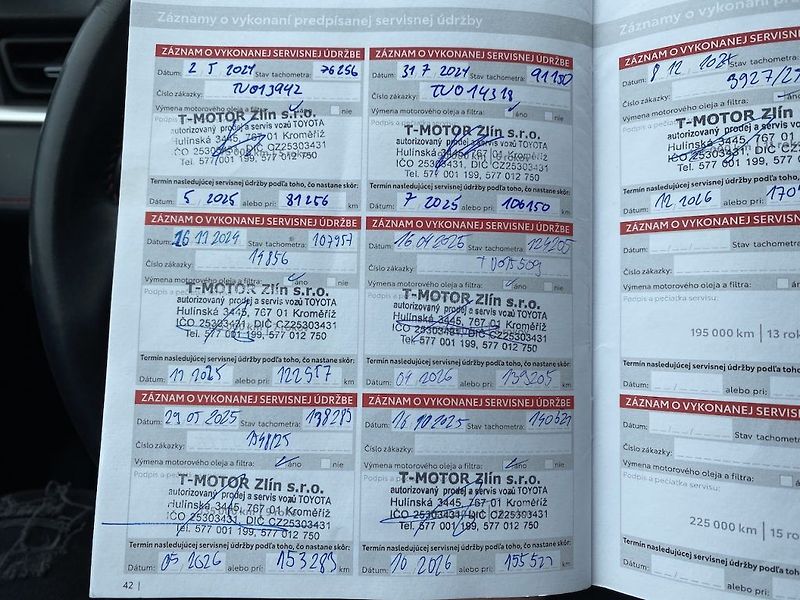 Záznamy o vykonaní predpísanej servisnej údržby
ZÁZNAM O VYKONANEJ SERVISNEJ ÚDRŽBE
Dátum: 2 5 2024 Stav tachometra: 76256
Číslo zákazky: TU013942
Výmena motorového oleja a filtra: áno nie
T-MOTOR Zlín s.r.o.
autorizovaný prodej a servis vozů TOYOTA
Hulínská 3445, 767 01 Kroměříž
IČO 25303431, DIČ CZ25303431
Tel. 577 001 199, 577 012 750
Termín nasledujúcej servisnej údržby podľa toho, čo nastane skôr:
Dátum: 5 2025 alebo pri: 81256 km
ZÁZNAM O VYKONANEJ SERVISNEJ ÚDRŽBE
Dátum: 31 7 2024 Stav tachometra: 91150
Číslo zákazky: TU014318
Výmena motorového oleja a filtra: áno nie
T-MOTOR Zlín s.r.o.
autorizovaný prodej a servis vozů TOYOTA
Hulínská 3445, 767 01 Kroměříž
IČO 25303431, DIČ CZ25303431
Tel. 577 001 199, 577 012 750
Termín nasledujúcej servisnej údržby podľa toho, čo nastane skôr:
Dátum: 7 2025 alebo pri: 106150 km
ZÁZNAM O VYKONANEJ SERVISNEJ ÚDRŽBE
Dátum: 16 11 2024 Stav tachometra: 107957
Číslo zákazky: 14856
Výmena motorového oleja a filtra: áno nie
T-MOTOR Zlín s.r.o.
autorizovaný prodej a servis vozů TOYOTA
Hulínská 3445, 767 01 Kroměříž
IČO 25303431, DIČ CZ25303431
Tel. 577 001 199, 577 012 750
Termín nasledujúcej servisnej údržby podľa toho, čo nastane skôr:
Dátum: 11 2025 alebo pri: 122957 km
ZÁZNAM O VYKONANEJ SERVISNEJ ÚDRŽBE
Dátum: 16 04 2025 Stav tachometra: 124205
Číslo zákazky:
Výmena motorového oleja a filtra: áno nie
T-MOTOR Zlín s.r.o.
autorizovaný prodej a servis vozů TOYOTA
Hulínská 3445, 767 01 Kroměříž
IČO 25303431, DIČ CZ25303431
Tel. 577 001 199, 577 012 750
Termín nasledujúcej servisnej údržby podľa toho, čo nastane skôr:
Dátum: 04 2026 alebo pri: 139205 km
ZÁZNAM O VYKONANEJ SERVISNEJ ÚDRŽBE
Dátum: 29 05 2025 Stav tachometra: 138283
Číslo zákazky:
Výmena motorového oleja a filtra: áno nie
T-MOTOR Zlín s.r.o.
autorizovaný prodej a servis vozů TOYOTA
Hulínská 3445, 767 01 Kroměříž
IČO 25303431, DIČ CZ25303431
Tel. 577 001 199, 577 012 750
Termín nasledujúcej servisnej údržby podľa toho, čo nastane skôr:
Dátum: 05 2026 alebo pri: 153283 km
ZÁZNAM O VYKONANEJ SERVISNEJ ÚDRŽBE
Dátum: 16 10 2025 Stav tachometra: 140521
Číslo zákazky:
Výmena motorového oleja a filtra: áno nie
T-MOTOR Zlín s.r.o.
autorizovaný prodej a servis vozů TOYOTA
Hulínská 3445, 767 01 Kroměříž
IČO 25303431, DIČ CZ25303431
Tel. 577 001 199, 577 012 750
Termín nasledujúcej servisnej údržby podľa toho, čo nastane skôr:
Dátum: 10 2026 alebo pri: 155521 km
42
Záznamy o vykonaní
ZÁZNAM O VYKONANEJ SERVISN
Dátum: 8 12 Stav tachometra:
Číslo zákazky:
Výmena motorového oleja a filtra:
T-MOTOR Zlín
autorizovaný prodej a servis
Hulínská 3445, 767 01
IČO 25303431, DIČ
Tel. 577 001 199,
Termín nasledujúcej servisnej údržby podľa toho
Dátum: 12 2026 alebo pri:
ZÁZNAM O VYKONANEJ SERVIS
Dátum: Stav tachometra:
Číslo zákazky:
Výmena motorového oleja a filtra:
Podpis a pečiatka servisu:
195 000 km | 13 rok
Termín nasledujúcej servisnej údržby podľa
Dátum: alebo pri:
ZÁZNAM O VYKONANEJ SERVIS
Dátum: Stav tachometra:
Číslo zákazky:
Výmena motorového oleja a filtra:
Podpis a pečiatka servisu:
225 000 km | 15 ro
Termín nasledujúcej servisnej údržby podľa
Dátum: alebo pri: